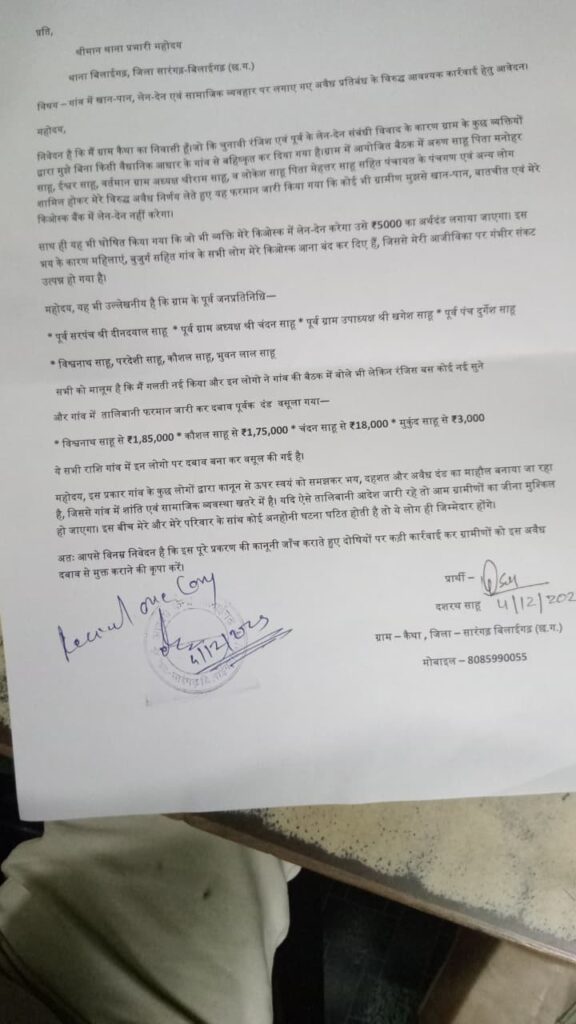 प्रति,
श्रीमान थाना प्रभारी महोदय
थाना बिलाईगढ़, जिला सारंगढ़-बिलाईगढ़ (छ.ग.)
विषय – गांव में खान-पान, लेन-देन एवं सामाजिक व्यवहार पर लगाए गए अवैध प्रतिबंध के विरुद्ध आवश्यक कार्रवाई हेतु आवेदन।
महोदय,
निवेदन है कि मैं ग्राम कैथा का निवासी हूँ।जो कि चुनावी रंजिश एवं पूर्व के लेन-देन संबंधी विवाद के कारण ग्राम के कुछ व्यक्तियों
द्वारा मुझे बिना किसी वैधानिक आधार के गांव से बहिष्कृत कर दिया गया है।ग्राम में आयोजित बैठक में अरुण साहू पिता मनोहर
साहू, ईश्वर साहू, वर्तमान ग्राम अध्यक्ष धीराम साहू, व लोकेश साहू पिता मेहत्तर साहू सहित पंचायत के पंचगण एवं अन्य लोग
शामिल होकर मेरे विरुद्ध अवैध निर्णय लेते हुए यह फरमान जारी किया गया कि कोई भी ग्रामीण मुझसे खान-पान, बातचीत एवं मेरे
किओस्क बैंक में लेन-देन नहीं करेगा।
साथ ही यह भी घोषित किया गया कि जो भी व्यक्ति मेरे किओस्क में लेन-देन करेगा उसे ₹5000 का अर्थदंड लगाया जाएगा। इस
भय के कारण महिलाएं, बुजुर्ग सहित गांव के सभी लोग मेरे किओस्क आना बंद कर दिए हैं, जिससे मेरी आजीविका पर गंभीर संकट
उत्पन्न हो गया है।
महोदय, यह भी उल्लेखनीय है कि ग्राम के पूर्व जनप्रतिनिधि—
* पूर्व सरपंच श्री दीनदयाल साहू * पूर्व ग्राम अध्यक्ष श्री चंदन साहू * पूर्व ग्राम उपाध्यक्ष श्री खगेश साहू * पूर्व पंच दुर्गेश साहू
* विश्वनाथ साहू, परदेशी साहू, कौशल साहू, भुवन लाल साहू
सभी को मालूम है कि मैं गलती नई किया और इन लोगो ने गांव की बैठक में बोले भी लेकिन रंजिस बस कोई नई सुने
और गांव में तालिबानी फरमान जारी कर दबाव पूर्वक दंड वसूला गया—
* विश्वनाथ साहू से ₹1,85,000 * कौशल साहू से ₹1,75,000 * चंदन साहू से ₹18,000 * मुकुंद साहू से ₹3,000
ये सभी राशि गांव में इन लोगो पर दबाव बना कर वसूल की गई है।
महोदय, इस प्रकार गांव के कुछ लोगों द्वारा कानून से ऊपर स्वयं को समझकर भय, दहशत और अवैध दंड का माहौल बनाया जा रहा
है, जिससे गांव में शांति एवं सामाजिक व्यवस्था खतरे में है। यदि ऐसे तालिबानी आदेश जारी रहे तो आम ग्रामीणों का जीना मुश्किल
हो जाएगा। इस बीच मेरे और मेरे परिवार के सांथ कोई अनहोनी घटना घटित होती है तो ये लोग ही जिम्मेदार होंगे।
अतः आपसे विनम्र निवेदन है कि इस पूरे प्रकरण की कानूनी जाँच कराते हुए दोषियों पर कड़ी कार्रवाई कर ग्रामीणों को इस अवैध
दबाव से मुक्त कराने की कृपा करें।
प्रार्थी –
दशरथ साहू 4/12/202
ग्राम – कैथा , जिला – सारंगढ़ बिलाईगढ़ (छ.ग.)
मोबाइल – 8085990055
one Copy
4/12/2025